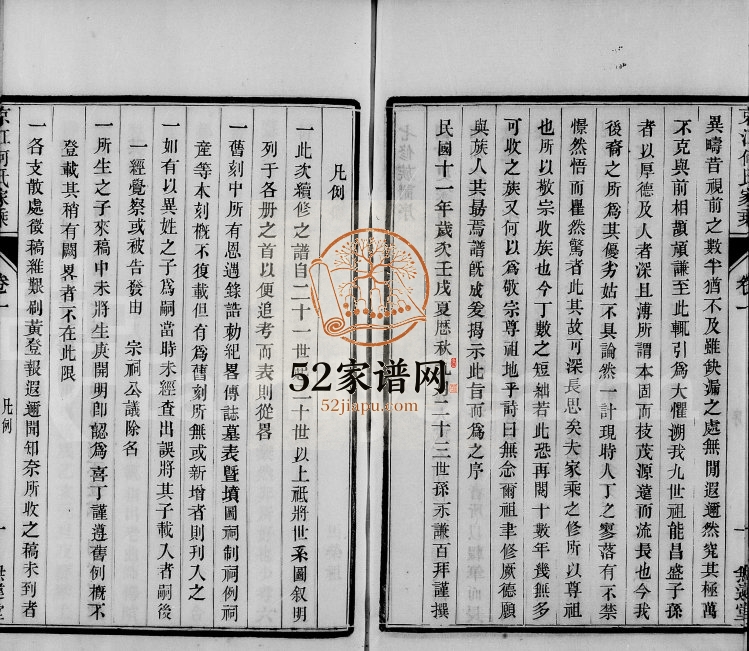 異疇昔視前之數半猶不及雖缺漏之處無閒遐邇然究其極萬
不克與前相頡頏謙至此輒引爲大懼溯我九世祖能昌盛子孫
者以厚德及人者深且溥所謂本固而枝茂源遠而流長也今我
後裔之所爲其優劣姑不具論然一計現時人丁之寥落有不禁
憬然悟而瞿然驚者此其故可深長思矣夫家乘之修所以尊祖
也所以敬宗收族也今丁數之短絀若此恐再閱十數年幾無多
可收之族又何以爲敬宗尊祖地乎詩曰無念爾祖聿修厥德願
與族人共勗焉譜旣成爰揭示此旨而爲之序
民國十一年歲次壬戌夏歷秋二十三世孫永謙百拜謹撰
家乘
卷一
凡例
一此次續修之譜自二十一世二十世以上祗將世系圖叙明
列于各册之首以便追考而表則從畧
一舊刻中所有恩遇錄誥勅紀畧傳誌墓表曁墳圖祠制祠例祠
產等本刻槪不復載但有爲舊刻所無或新增者則刊入之
一如有以異姓之子爲嗣當時未經查出誤將其子載入者嗣後
一經覺察或被告發由 宗祠公議除名
一所生之子來稿中未將生庚開明卽認爲喜丁謹遵舊例槪不
登載其稍有闕畧者不在此限
一各支散處徵稿維艱剔黃登報遐邇聞知奈所收之稿未到者
家乘
卷一
凡例
一
52家谱网
52jiapu.com